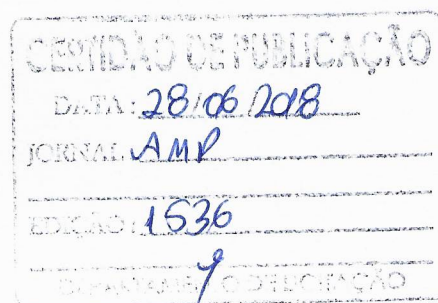 CERTIDÃO DE PUBLICAÇÃO
DATA: 28/06/2018
JORNAL: AMP
EDIÇÃO: 1536